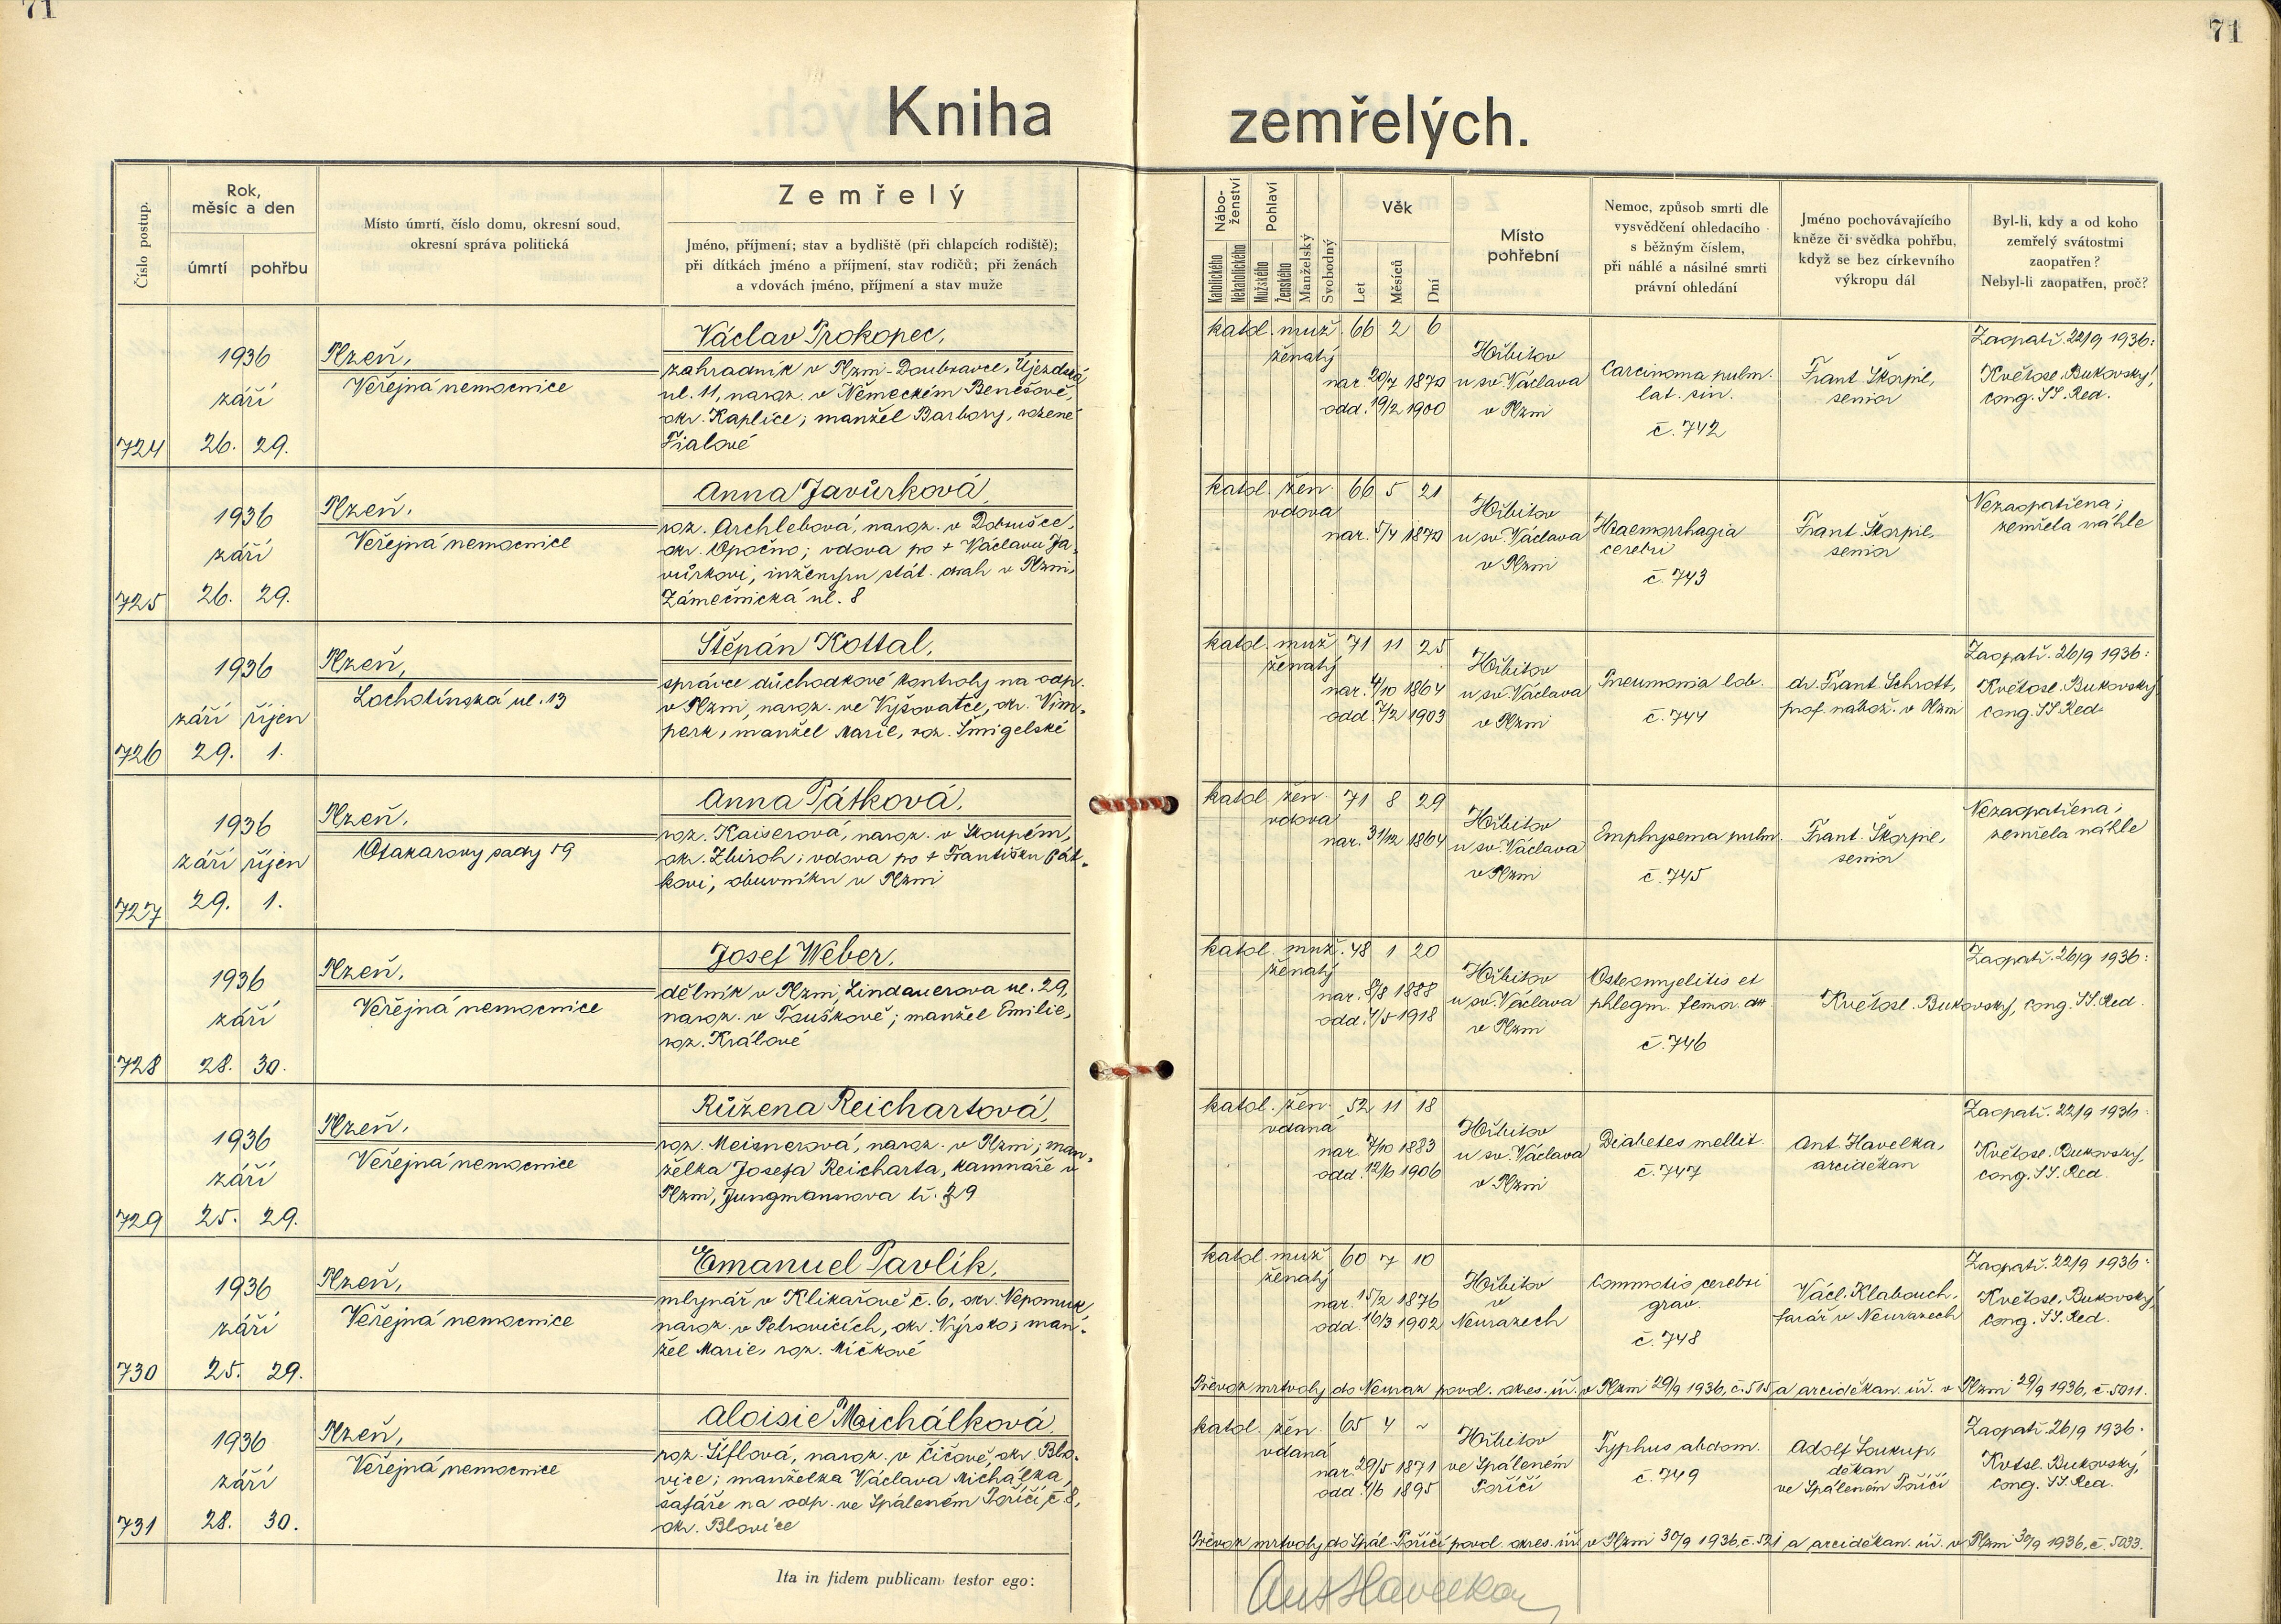 71
71
Kniha zemřelých.
Číslo postup.
Rok, měsíc a den
úmrtí
pohřbu
Místo úmrtí, číslo domu, okresní soud,
okresní správa politická
Zemřelý
Jméno, příjmení; stav a bydliště (při chlapcích rodiště);
při dítkách jméno a příjmení, stav rodičů; při ženách
a vdovách jméno, příjmení a stav muže
Nábo-
ženství
Katolického
Nekatolického
Pohlaví
Mužského
Ženského
Manželský
Svobodný
Věk
Let
Měsíců
Dní
Místo
pohřební
Nemoc, způsob smrti dle
vysvědčení ohledacího
s běžným číslem,
při náhlé a násilné smrti
právní ohledání
Jméno pochovávajícího
kněze či svědka pohřbu,
když se bez církevního
výkropu dál
Byl-li, kdy a od koho
zemřelý svátostmi
zaopatřen?
Nebyl-li zaopatřen, proč?
724
1936
září
26. 29.
Plzeň,
Veřejná nemocnice
Václav Prokopec,
zahradník v Plzni-Doubravce, Újezdská
ul. 11, naroz. v Německém Benešově,
okr. Kaplice; manžel Barbory, rozené
Fialové
katol. muž. 66 2 6
ženatý
nar. 20/7 1870
odd. 19/2 1900
Hřbitov
u sv. Václava
v Plzni
Carcinoma pulm.
lat. sin.
č. 742
Frant. Škorpil,
senior
Zaopatř. 22/9 1936:
Květosl. Bukovský,
cong. SS. Red.
725
1936
září
26. 29.
Plzeň,
Veřejná nemocnice
Anna Javůrková,
roz. Archlebová, naroz. v Dobrušce,
okr. Opočno; vdova po + Václavu Ja-
vůrkovi, inženýru stát. drah v Plzni,
Zámečnická ul. 8
katol. žen. 66 5 21
vdova
nar. 5/4 1870
Hřbitov
u sv. Václava
v Plzni
Haemorrhagia
cerebri
č. 743
Frant. Škorpil,
senior
Nezaopatřena;
zemřela náhle
726
1936
září říjen
29. 1.
Plzeň,
Lochotínská ul. 13
Štěpán Kottal,
správce důchodkové kontroly na odp.
v Plzni, naroz. ve Vyšovatce, okr. Vim-
perk, manžel Marie, roz. Šmigelské
katol. muž 71 11 25
ženatý
nar. 4/10 1864
odd. 7/2 1903
Hřbitov
u sv. Václava
v Plzni
Pneumonia lob.
č. 744
dr. Frant. Schrott,
prof. nábož. v Plzni
Zaopatř. 26/9 1936:
Květosl. Bukovský,
cong. SS. Red.
727
1936
září říjen
29. 1.
Plzeň,
Otakarovy sady 19
Anna Pátková,
roz. Kaiserová, naroz. v Skoupém,
okr. Zbiroh; vdova po + Františku Pát-
kovi, obuvníku v Plzni
katol. žen. 71 8 29
vdova
nar. 31/12 1864
Hřbitov
u sv. Václava
v Plzni
Emphysema pulm.
č. 745
Frant. Škorpil,
senior
Nezaopatřena;
zemřela náhle
728
1936
září
28. 30.
Plzeň,
Veřejná nemocnice
Josef Weber,
dělník v Plzni, Lindauerova ul. 29,
naroz. v Touškově; manžel Emilie,
roz. Králové
katol. muž. 48 1 20
ženatý
nar. 8/8 1888
odd. 4/5 1918
Hřbitov
u sv. Václava
v Plzni
Osteomyelitis et
phlegm. femor. dx
č. 746
Zaopatř. 26/9 1936:
Květosl. Bukovský, cong. SS. Red.
729
1936
září
25. 29.
Plzeň,
Veřejná nemocnice
Růžena Reichartová,
roz. Meisnerová, naroz. v Plzni; man-
želka Josefa Reicharta, kamnáře v
Plzni, Jungmannova tř. 29
katol. žen. 52 11 18
vdaná
nar. 7/10 1883
odd. 12/6 1906
Hřbitov
u sv. Václava
v Plzni
Diabetes mellit.
č. 747
Ant. Havelka,
arciděkan
Zaopatř. 22/9 1936:
Květosl. Bukovský,
cong. SS. Red.
730
1936
září
25. 29.
Plzeň,
Veřejná nemocnice
Emanuel Pavlík,
mlynář v Klikařově č. 6, okr. Nepomuk,
naroz. v Petrovicích, okr. Nýrsko; man-
žel Marie, roz. Mičkové
katol. muž 60 7 10
ženatý
nar. 15/2 1876
odd. 16/3 1902
Hřbitov
v
Neurazech
Commotio cerebri
grav.
č. 748
Václ. Klabouch,
farář v Neurazech
Zaopatř. 22/9 1936:
Květosl. Bukovský,
cong. SS. Red.
Převoz mrtvoly do Neuraz povol. okres. úř. v Plzni 29/9 1936, č. 515 a arciděkan. úř. v Plzni 29/9 1936, č. 5011.
731
1936
září
28. 30.
Plzeň,
Veřejná nemocnice
Aloisie Michálková,
roz. Šiflová, naroz. v Čičově, okr. Blo-
vice; manželka Václava Michálka,
šafáře na odp. ve Spáleném Poříčí, č. 8,
okr. Blovice
katol. žen. 65 4 ~
vdaná
nar. 29/5 1871
odd. 4/6 1895
Hřbitov
ve Spáleném
Poříčí
Typhus abdom.
č. 749
Adolf Soukup,
děkan
ve Spáleném Poříčí
Zaopatř. 26/9 1936:
Kvetsl. Bukovský,
cong. SS. Red.
Převoz mrtvoly do Spál. Poříčí povol. okres. úř. v Plzni 30/9 1936, č. 521 a arciděkan. úř. v Plzni 30/9 1936, č. 5033.
Ita in fidem publicam testor ego:
Ant Havelka